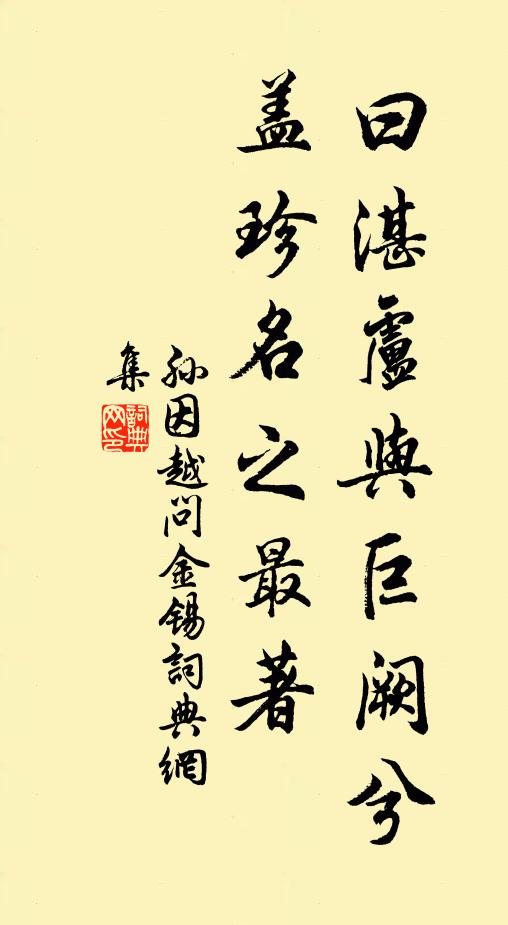 曰湛盧與巨阙兮
盖珍名之最著
孙因越问金锡詞典網
集
詞典
网印